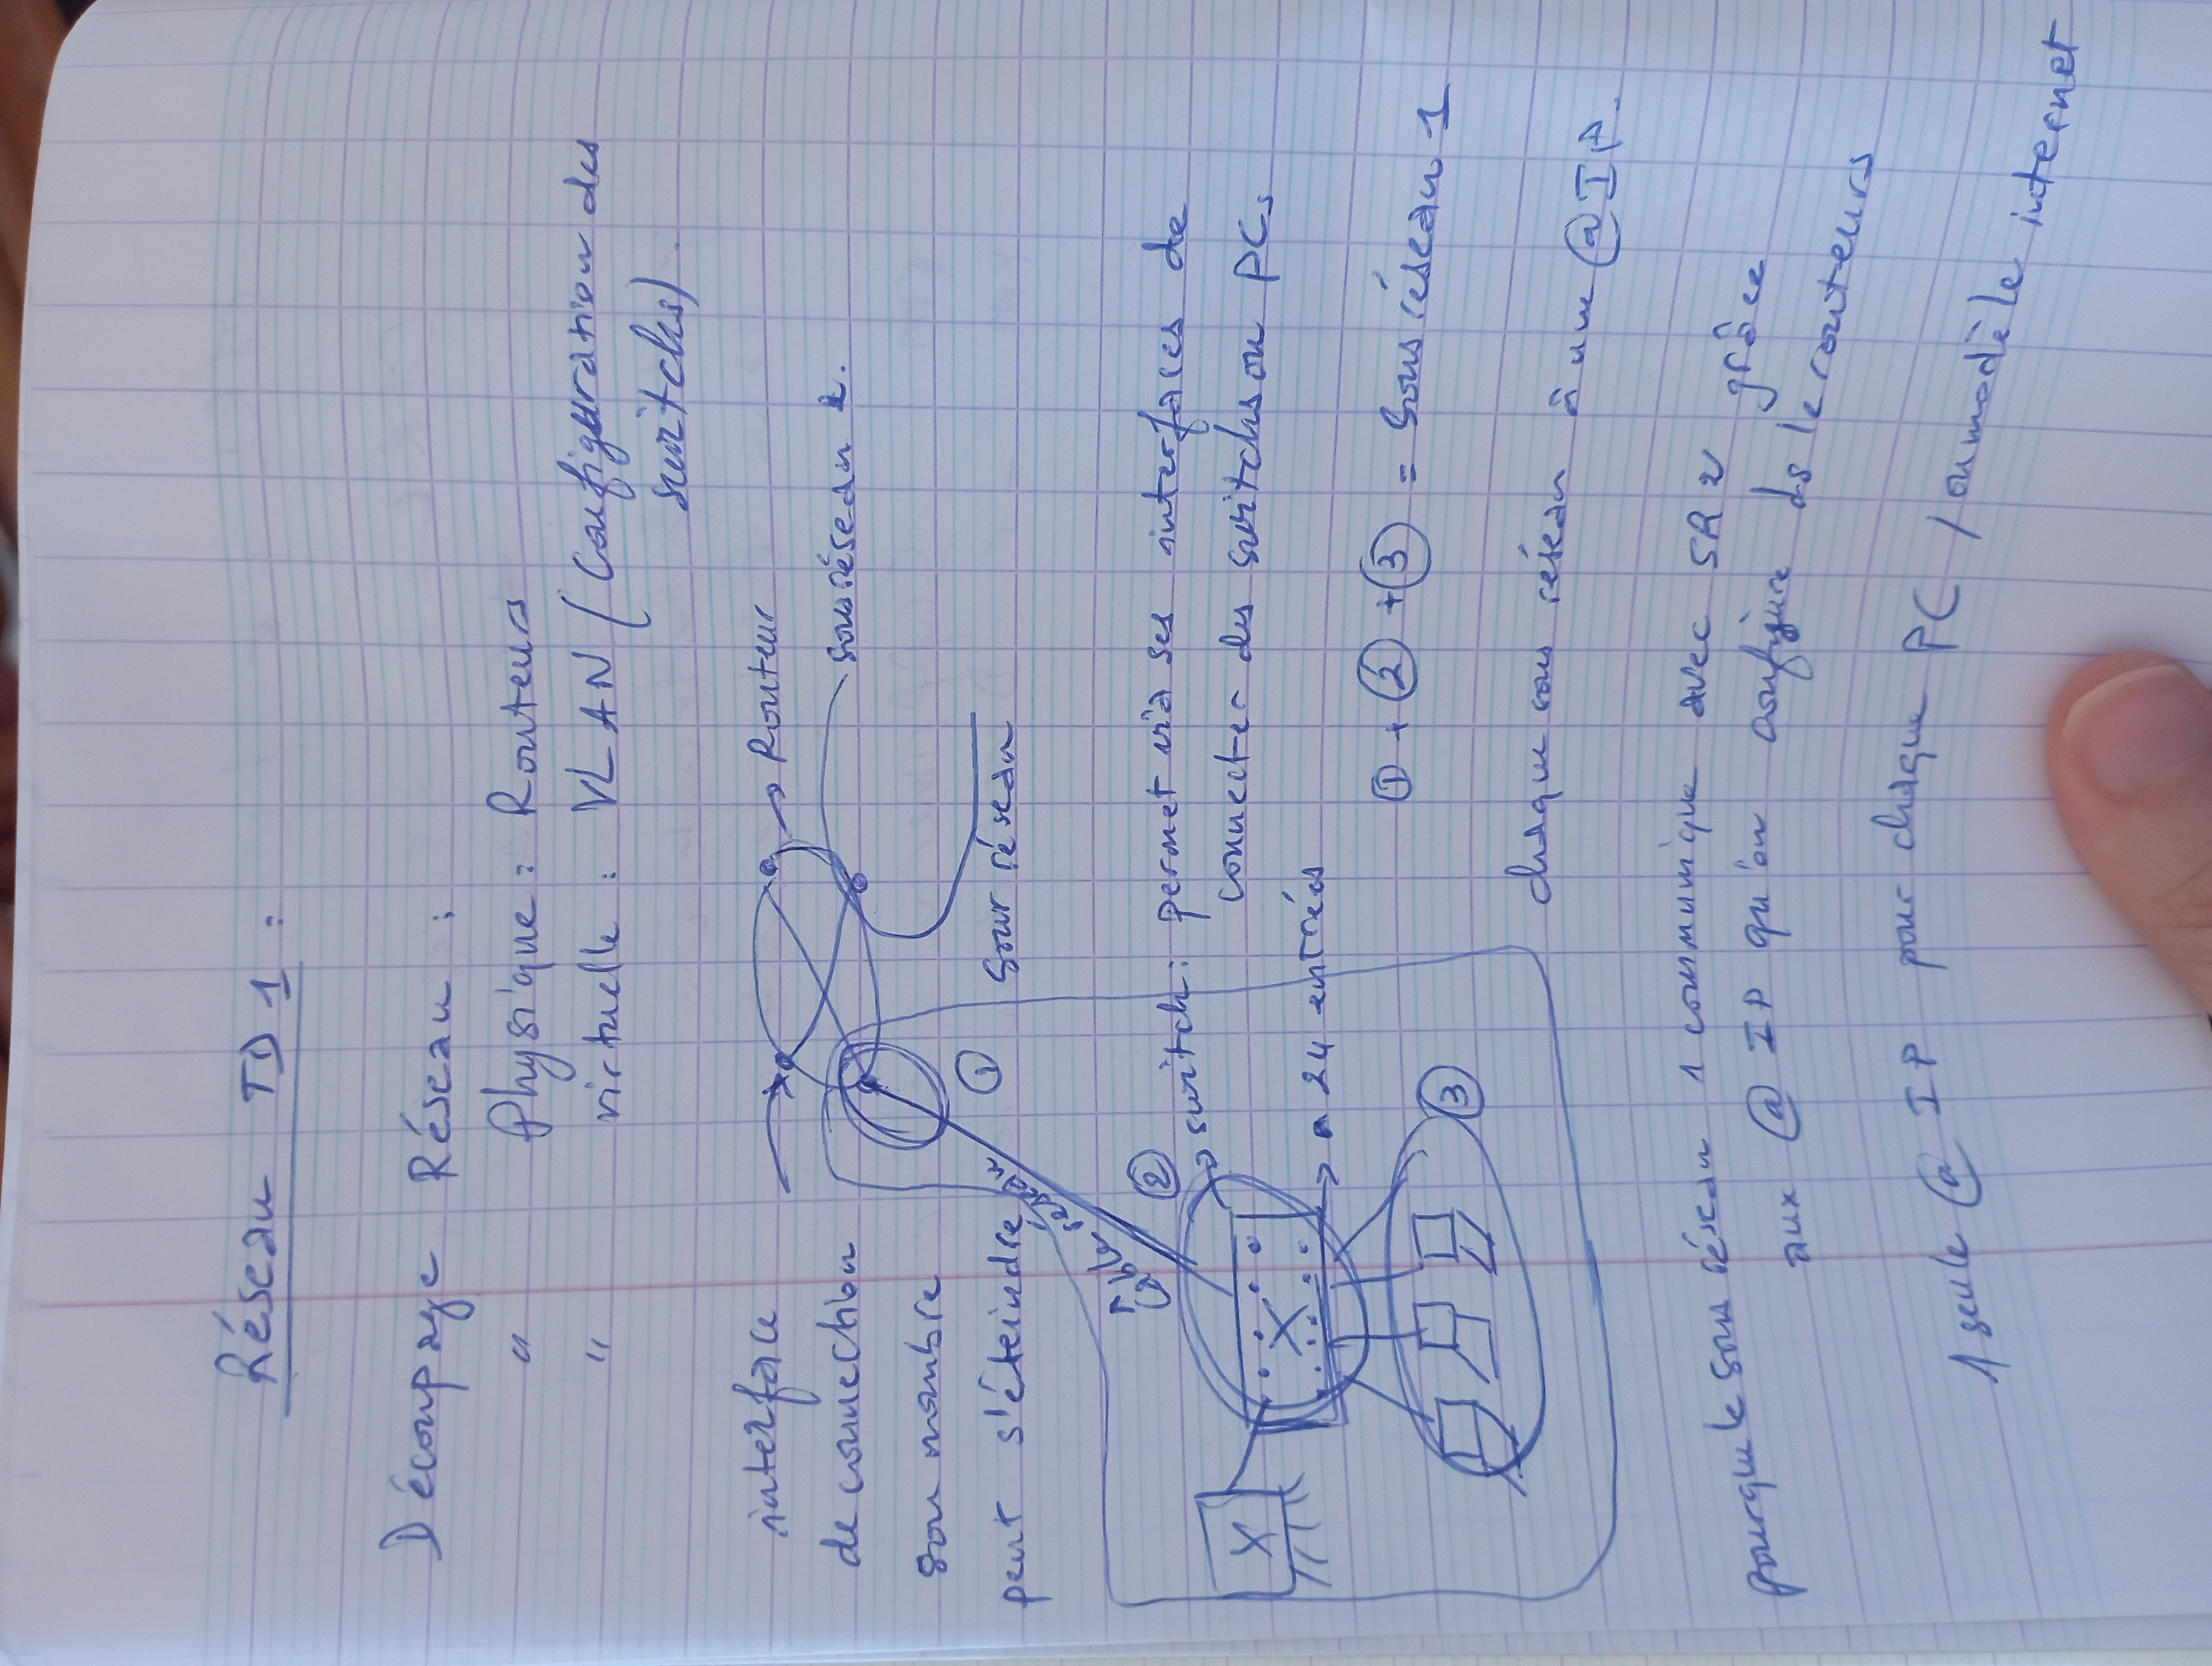 Réseau TD 1 :
Découpage Réseau :
" Physique : Routeurs
" virtuelle : VLAN (Configuration des
switchs).
interface
de connection
son nombre
peut s'éteindre
Routeur
sous réseau 2.
①
sous réseau
Cable réseau
②
switch : permet via ses interfaces de
connecter des switchs ou PCs
a 24 entrés
X
X
③
① + ② + ③ = sous réseau 1
chaque sous réseau à une @IP.
pourque le sous réseau 1 communique avec SR2 grâce
aux @IP qu'on configure ds le routeurs
1 seule @ IP pour chaque PC / ou modèle internet